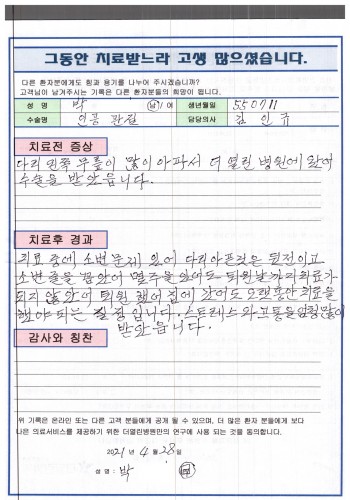 그동안 치료받느라 고생 많으셨습니다.
다른 환자분에게도 힘과 용기를 나누어 주시겠습니까?
고객님이 남겨주시는 기록은 다른 환자분들의 희망이 됩니다.
성 명 박 남 / 여 생년월일 550711
수술명 인공관절 담당의사 김인규
치료전 증상
다리 왼쪽 무릎이 많이 아파서 더 열린 병원에 와서
수술을 받았읍니다.
치료후 경과
치료 중에 소변 문제 있어 다리 아픈것은 뒷전이고
소변줄을 꽂았어 몇주을 있어도 퇴원날까지 치료가
되지 않았어 퇴원 했어 집에 갔어도 오랫동안 치료을
했야 되는 실정입니다. 스트레스와 고통을 엄청많이
받았읍니다.
감사와 칭찬
위 기록은 온라인 또는 다른 고객 분들에게 공개 될 수 있으며, 더 많은 환자 분들에게 보다
나은 의료서비스를 제공하기 위한 더열린병원만의 연구에 사용 되는 것을 동의합니다.
2021 년 4 월 28 일
성 명 : 박